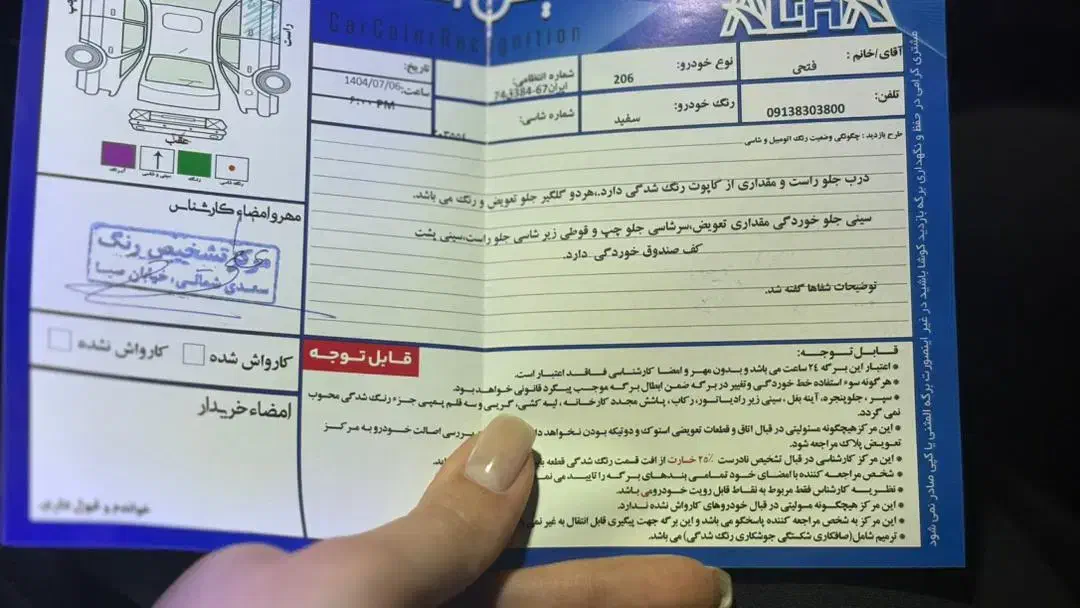 Car Color Recognition
ALFA
آقای/خانم : فتحی
نوع خودرو: 206
شماره انتظامی: ایران67-384
تاریخ: 1404/07/06
تلفن: 09138303800
رنگ خودرو: سفید
شماره شاسی:
ساعت: ۶:۰۰ PM
طرح بازدید : چگونگی وضعیت رنگ اتومبیل و شاسی
درب جلو راست و مقداری از کاپوت رنگ شدگی دارد.،هردو گلگیر جلو تعویض و رنگ می باشد.
سینی جلو خوردگی مقداری تعویض،سرشاسی جلو چپ و قوطی زیر شاسی جلو راست،سینی پشت
کف صندوق خوردگی دارد.
توضیحات شفاها گفته شد.
راست
عقب
مهر و امضاء کارشناس
مرکز تشخیص رنگ
سعدی شمالی، خیابان صبا
کارواش شده
کارواش نشده
امضاء خریدار
خواندم و قبول دارم
قابل توجه
قابل توجه:
• اعتبار این برگه ۲٤ ساعت می باشد و بدون مهر و امضا کارشناسی فاقد اعتبار است.
• هرگونه سوء استفاده خط خوردگی و تغییر در برگه ضمن ابطال برگه موجب پیگرد قانونی خواهد بود.
• سپر ، جلوپنجره، آینه بغل ، سینی زیر رادیاتور، رکاب، پاشش مجدد کارخانه ، لیسه کشی، گریی و سه قلم پمپی جزء رنگ شدگی محسوب
نمی گردد.
• این مرکز هیچگونه مسئولیتی در قبال اتاق و قطعات تعویضی استوک و دوتیکه بودن نخواهد بررسی اصالت خودرو به مرکز
تعویض پلاک مراجعه شود.
• این مرکز کارشناسی در قبال تشخیص نادرست ۲۵٪ خسارت از افت قسمت رنگ شدگی قطعه
• شخص مراجعه کننده با امضای خود تمامی بندهای برگه را تایید می
• نظریه کارشناس فقط مربوط به نقاط قابل رویت خودرومی باشد.
• این مرکز هیچگونه مسولیتی در قبال خودروهای کارواش نشده ندارد.
• این مرکز به شخص مراجعه کننده پاسخگو می باشد و این برگه جهت پیگیری قابل انتقال به غیر
• ترمیم شامل(صافکاری شکستگی جوشکاری رنگ شدگی) می باشد.
مشتری گرامی در حفظ و نگهداری برگه بازدید کوشا باشید در غیر اینصورت برگه المثنی یا کپی صادر نمی شود